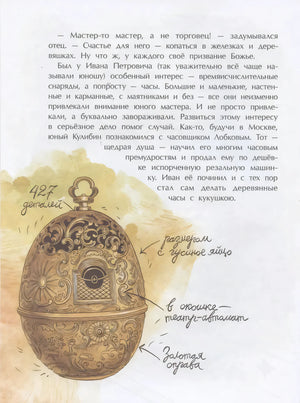 — Мастер-то мастер, а не торговец! — задумывался
отец. — Счастье для него — копаться в железках и дере-
вяшках. Ну что ж, у каждого своё призвание Божье.
Был у Ивана Петровича (так уважительно всё чаще назы-
вали юношу) особенный интерес — времяисчислительные
снаряды, а попросту — часы. Большие и маленькие, настен-
ные и карманные, с маятниками и без — все они неизменно
привлекали внимание юного мастера. И не просто привле-
кали, а буквально завораживали. Развиться этому интересу
в серьёзное дело помог случай. Как-то, будучи в Москве,
юный Кулибин познакомился с часовщиком Лобковым. Тот —
щедрая душа — научил его многим часовым
премудростям и продал ему по дешёв-
ке испорченную резальную машин-
ку. Иван её починил и с тех пор
стал сам делать деревянные
часы с кукушкою.
427
деталей
размером
с гусиное яйцо
в окошке —
театр-автомат
Золотая
оправа